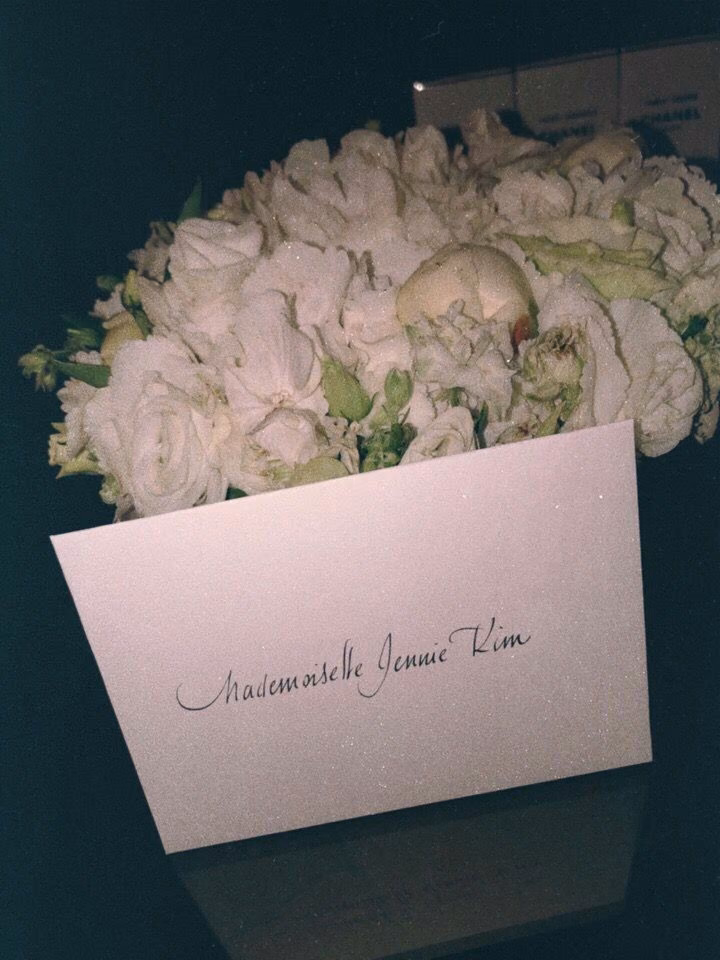 CHANEL
CHANEL
Mademoiselle Jennie Kim